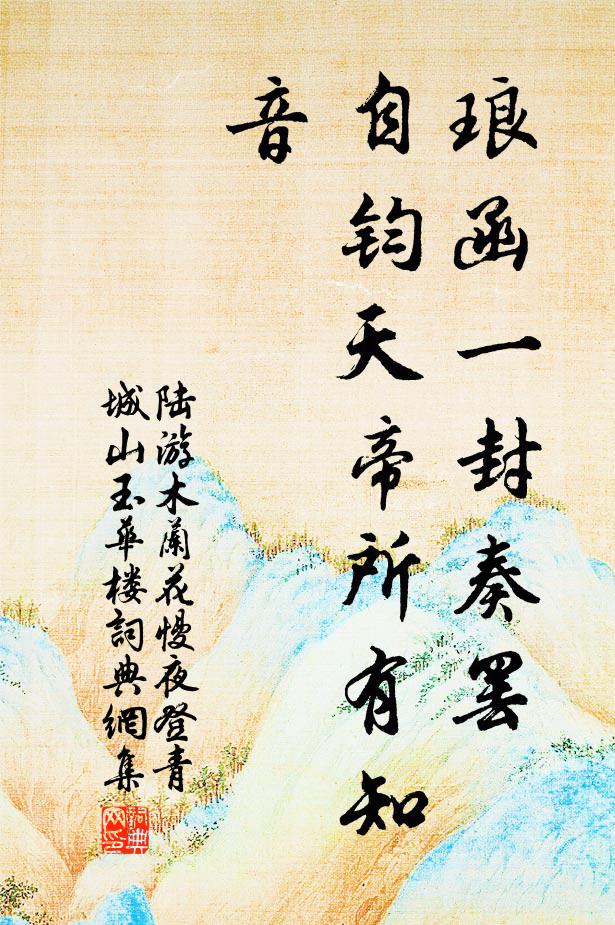 琅函一封奏罢
自钧天帝所有知
音
陆游木蘭花慢夜登青
城山玉華楼詞典網集
詞典
网印